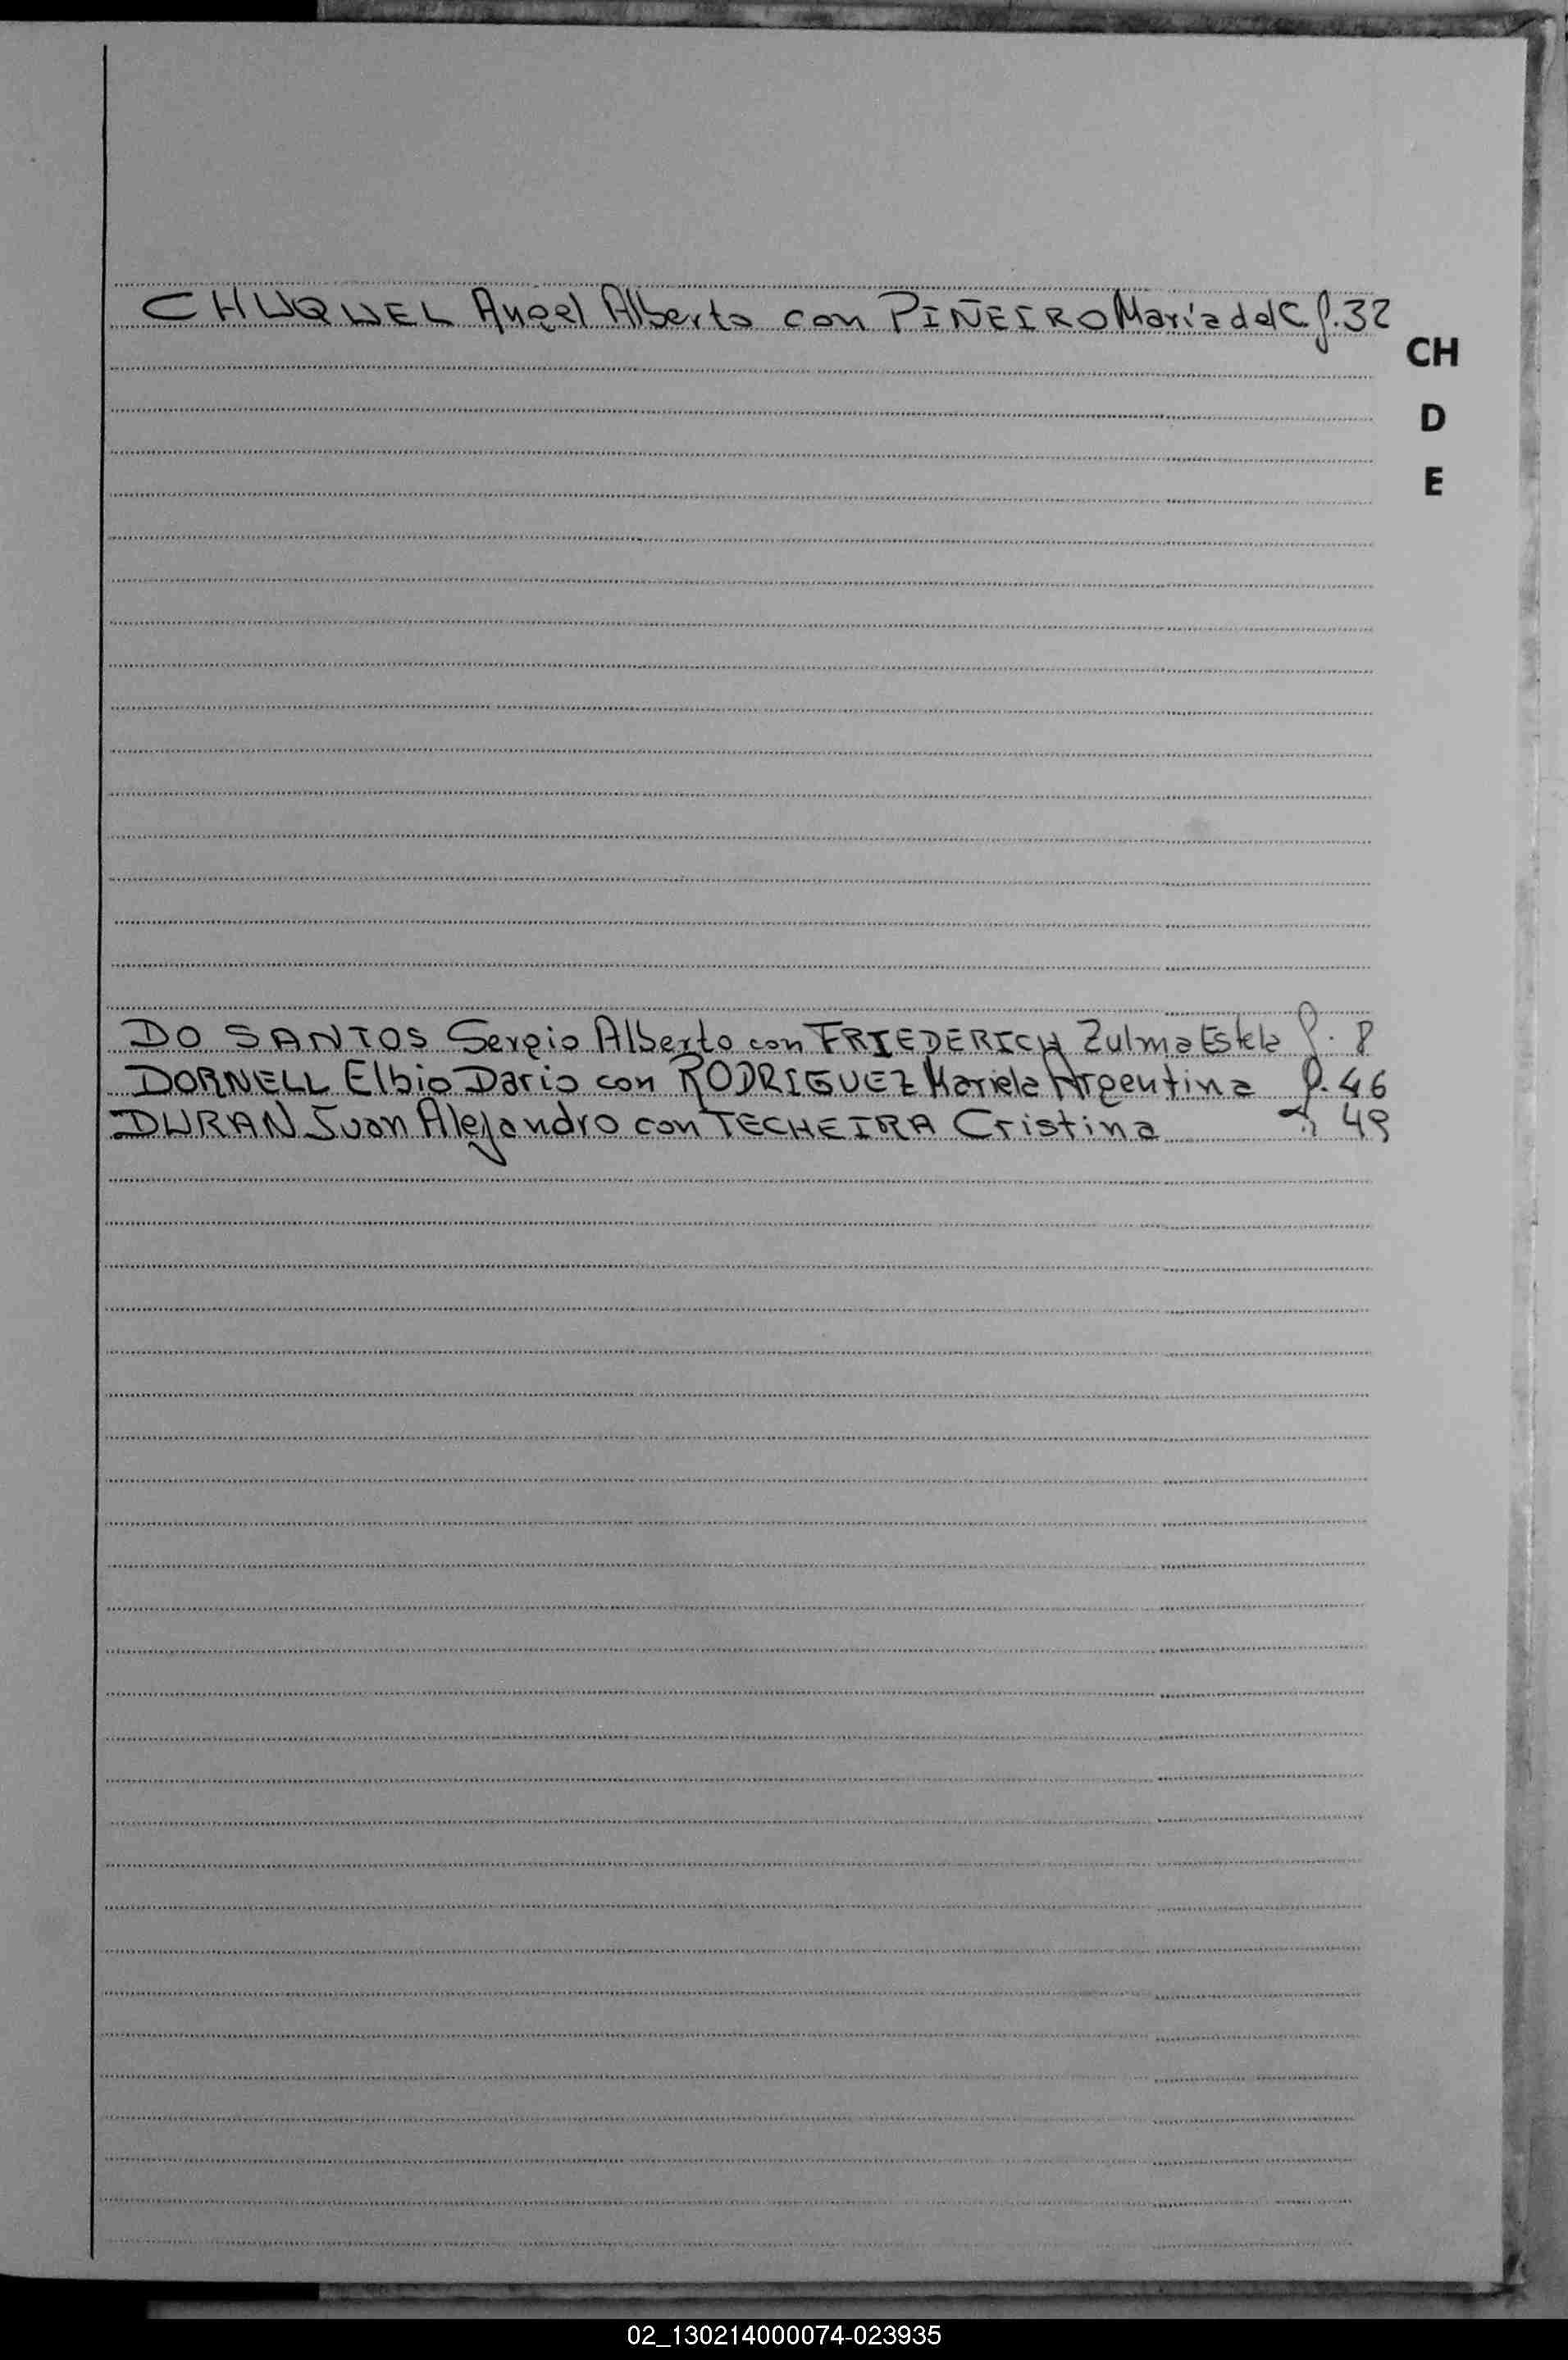 CHUQUEL Angel Alberto con PIÑEIRO María del C. f. 32
CH
D
E
DO SANTOS Sergio Alberto con FRIEDERICH Zulma Estela f. 8
DORNELL Elbio Dario con RODRIGUEZ Mariela Argentina f. 46
DURAN Juan Alejandro con TECHEIRA Cristina f. 49
02_130214000074-023935